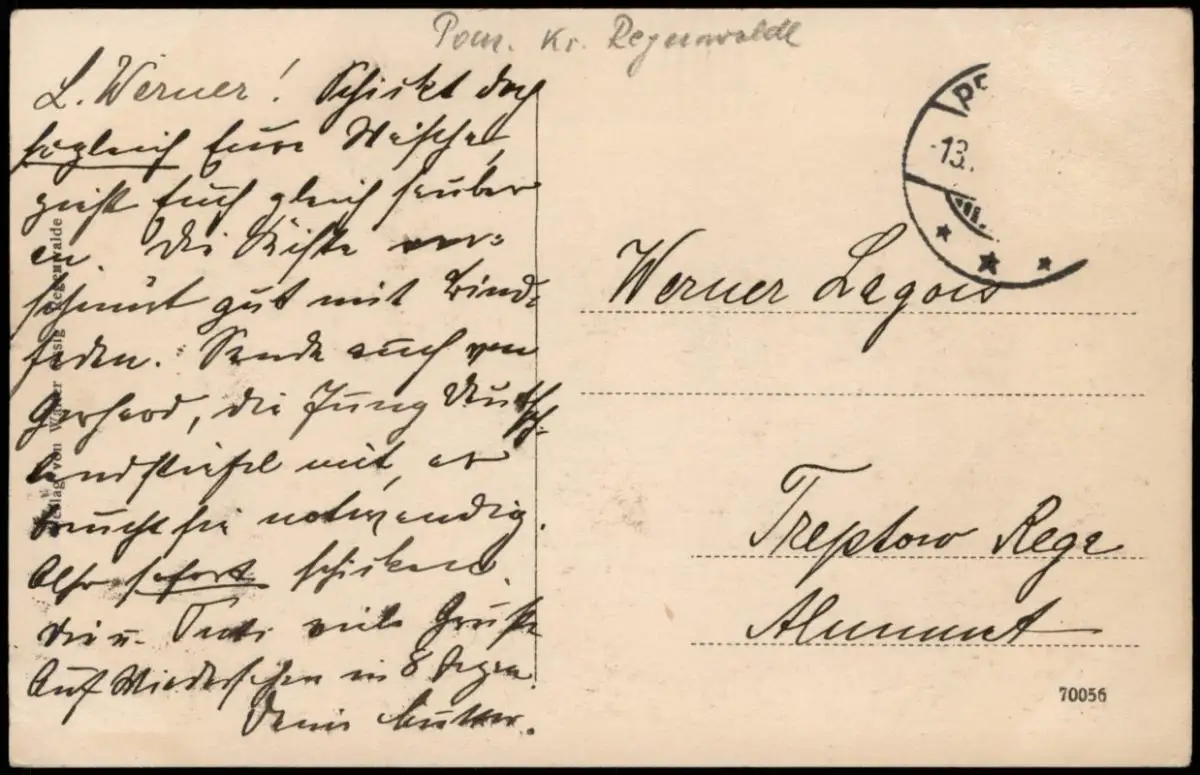 Pom. Kr. Regenwalde
L. Werner! Schickt doch
sogleich Eure Wäsche,
zieht Euch gleich sauber
an. Die Kiste ver=
schnürt gut mit Bind=
faden. Sende auch von
Gerhard, die Jung Deutsch=
landstiefel mit, er
braucht sie notwendig.
Also sofort schicken.
Dir u. viele Grüße
Auf Wiedersehen in 8 Tagen.
Deine Mutter.
Verlag von Regenwalde
-13.
Werner Lagois
Treptow Rega
Alumnat
70056